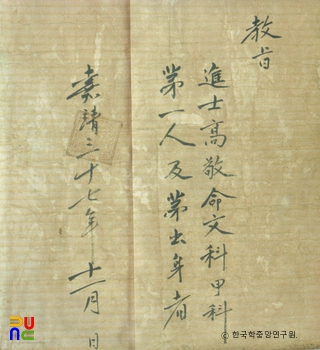 教旨
進士高敬命文科甲科
第一人及第出身者
嘉靖三十七年 十一月 日
ⓒ 한국학중앙연구원.